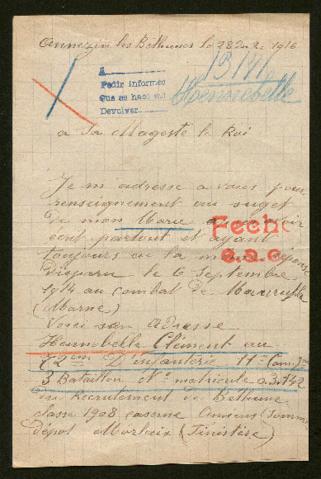 Annezin les Bethunes le 28 1916
A
Pedir informes
Que se hace
Devolver
Hennebelle
a Sa Mageste le Roi
Je m'adresse a vous pour
renseignement au suget
de mon Marie
ecrit partout et ayant
toujours eu la même
disparu le 6 Septembre
1914 au combat de
(Marne)
Fecha
Voici son adresse
Hennebelle Clément au
72 d'infanterie 11e Comp
3 Bataillon No matricule
au Recrutement de Bethune
classe 1908 caserne Amiens (Somme)
dépot Morlaix (Finistère)